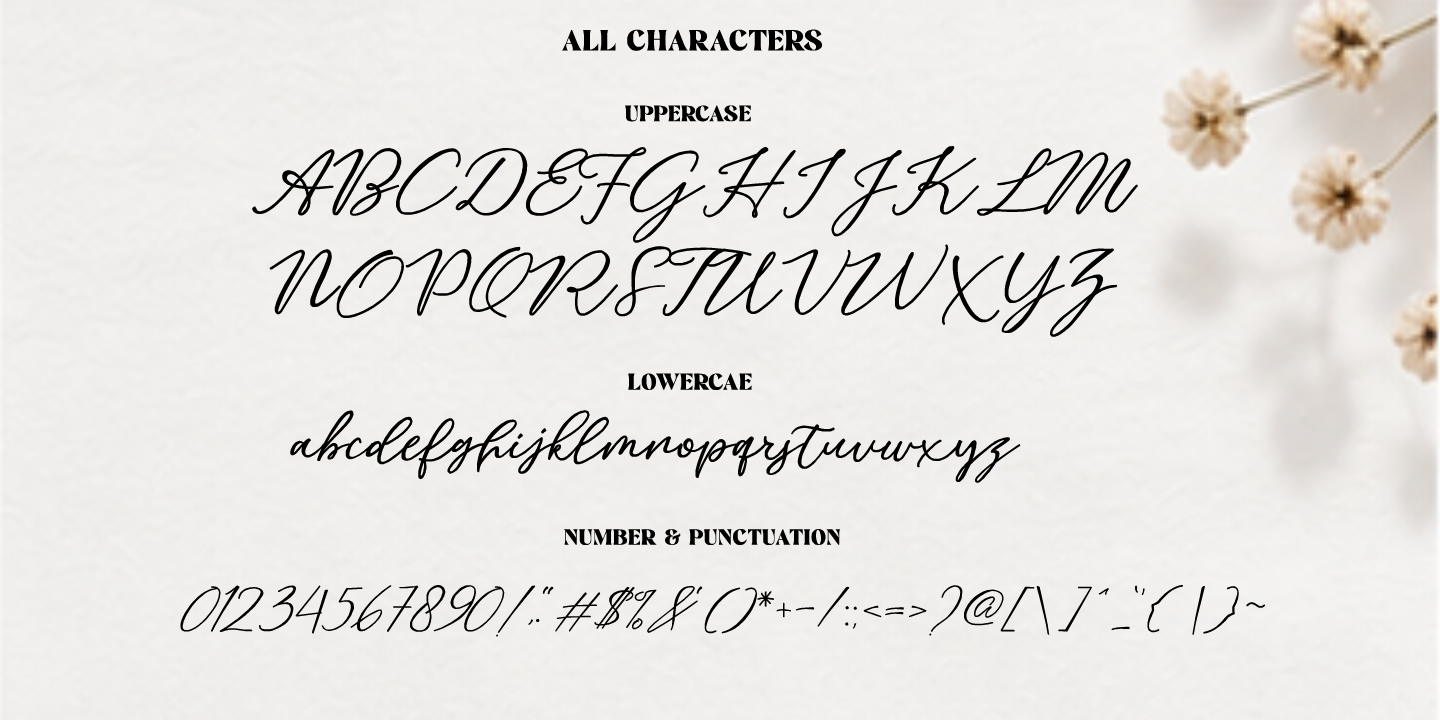 ALL CHARACTERS
UPPERCASE
ABCDEFGHIJKLM
NOPQRSTUVWXYZ
LOWERCAE
abcdefghijklmnopqrstuvwxyz
NUMBER & PUNCTUATION
01234567890!,."#$%&'()*+-/:;<=>?@[\]^_¨{|}~